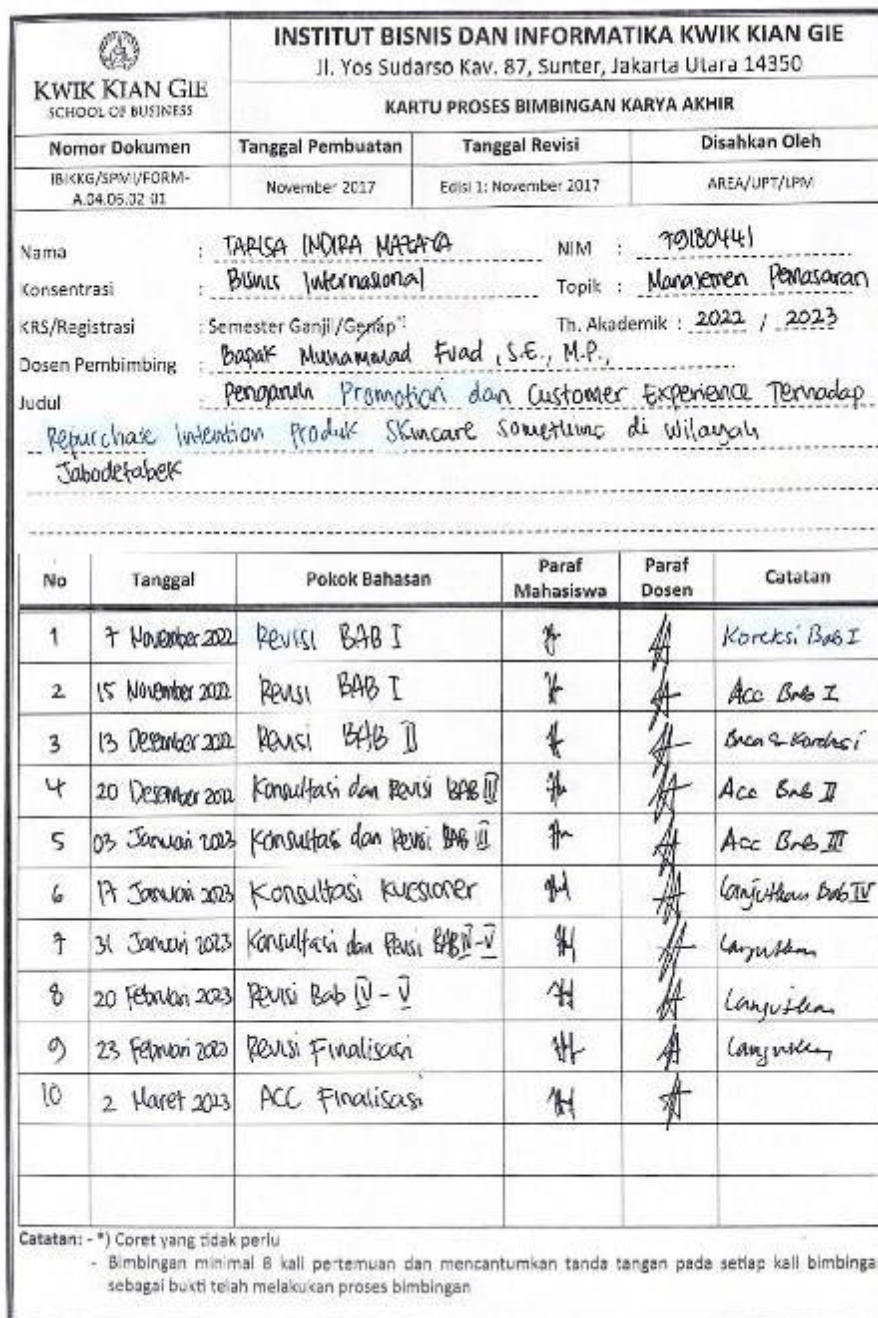 KWIK KIAN GIE
SCHOOL OF BUSINESS
INSTITUT BISNIS DAN INFORMATIKA KWIK KIAN GIE
Jl. Yos Sudarso Kav. 87, Sunter, Jakarta Utara 14350
KARTU PROSES BIMBINGAN KARYA AKHIR
Nomor Dokumen Tanggal Pembuatan Tanggal Revisi Disahkan Oleh
IBIKKG/SPMI/FORM-A.04.06.02-01 November 2017 Edisi 1: November 2017 AREA/UPT/LPM
Nama : TARISA INDIRA NIM : 79180441
Konsentrasi : Bisnis Internasional Topik : Manajemen Pemasaran
KRS/Registrasi : Semester Ganjil/Genap*) Th. Akademik : 2022 / 2023
Dosen Pembimbing : Bapak Muhammad Fuad, S.E., M.P.,
Judul : Pengaruh Promotion dan Customer Experience Terhadap
Repurchase Intention Produk Skincare Somethinc di Wilayah
Jabodetabek
No Tanggal Pokok Bahasan Paraf Mahasiswa Paraf Dosen Catatan
1 7 November 2022 Revisi BAB I Koreksi Bab I
2 15 November 2022 Revisi BAB I Acc Bab I
3 13 Desember 2022 Revisi BAB II
4 20 Desember 2022 Konsultasi dan Revisi BAB II Acc Bab II
5 03 Januari 2023 Konsultasi dan Revisi BAB III Acc Bab III
6 17 Januari 2023 Konsultasi Kuesioner Lanjutkan Bab IV
7 31 Januari 2023 Konsultasi dan Revisi BAB IV-V Lanjutkan
8 20 Februari 2023 Revisi Bab IV - V Lanjutkan
9 23 Februari 2023 Revisi Finalisasi Lanjutkan
10 2 Maret 2023 ACC Finalisasi
Catatan: - *) Coret yang tidak perlu
- Bimbingan minimal 8 kali pertemuan dan mencantumkan tanda tangan pada setiap kali bimbinga
sebagai bukti telah melakukan proses bimbingan